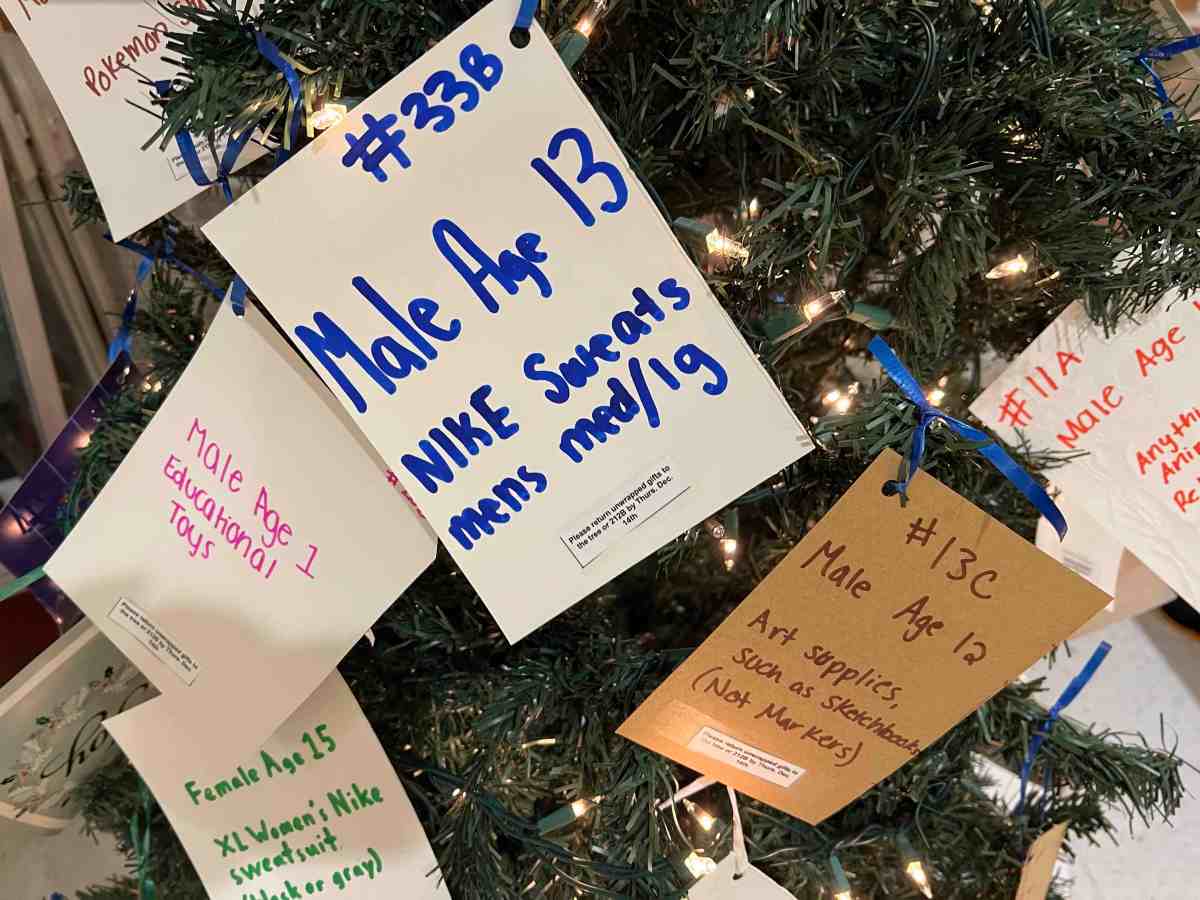 Pokemon
#33B
Male Age 13
NIKE Sweats
mens med/lg
Please return unwrapped gifts to
the tree or 212B by Thurs. Dec.
14th
Male Age 1
Educational
Toys
Please return unwrapped gifts to
the tree or 212B by Thurs. Dec.
14th
Female Age 15
XL Women's Nike
sweatsuit
(black or gray)
#13C
Male Age 12
Art supplies,
such as sketchbooks
(Not Markers)
Please return unwrapped gifts to
the tree or 212B by Thurs. Dec.
14th
#11A
Male Age